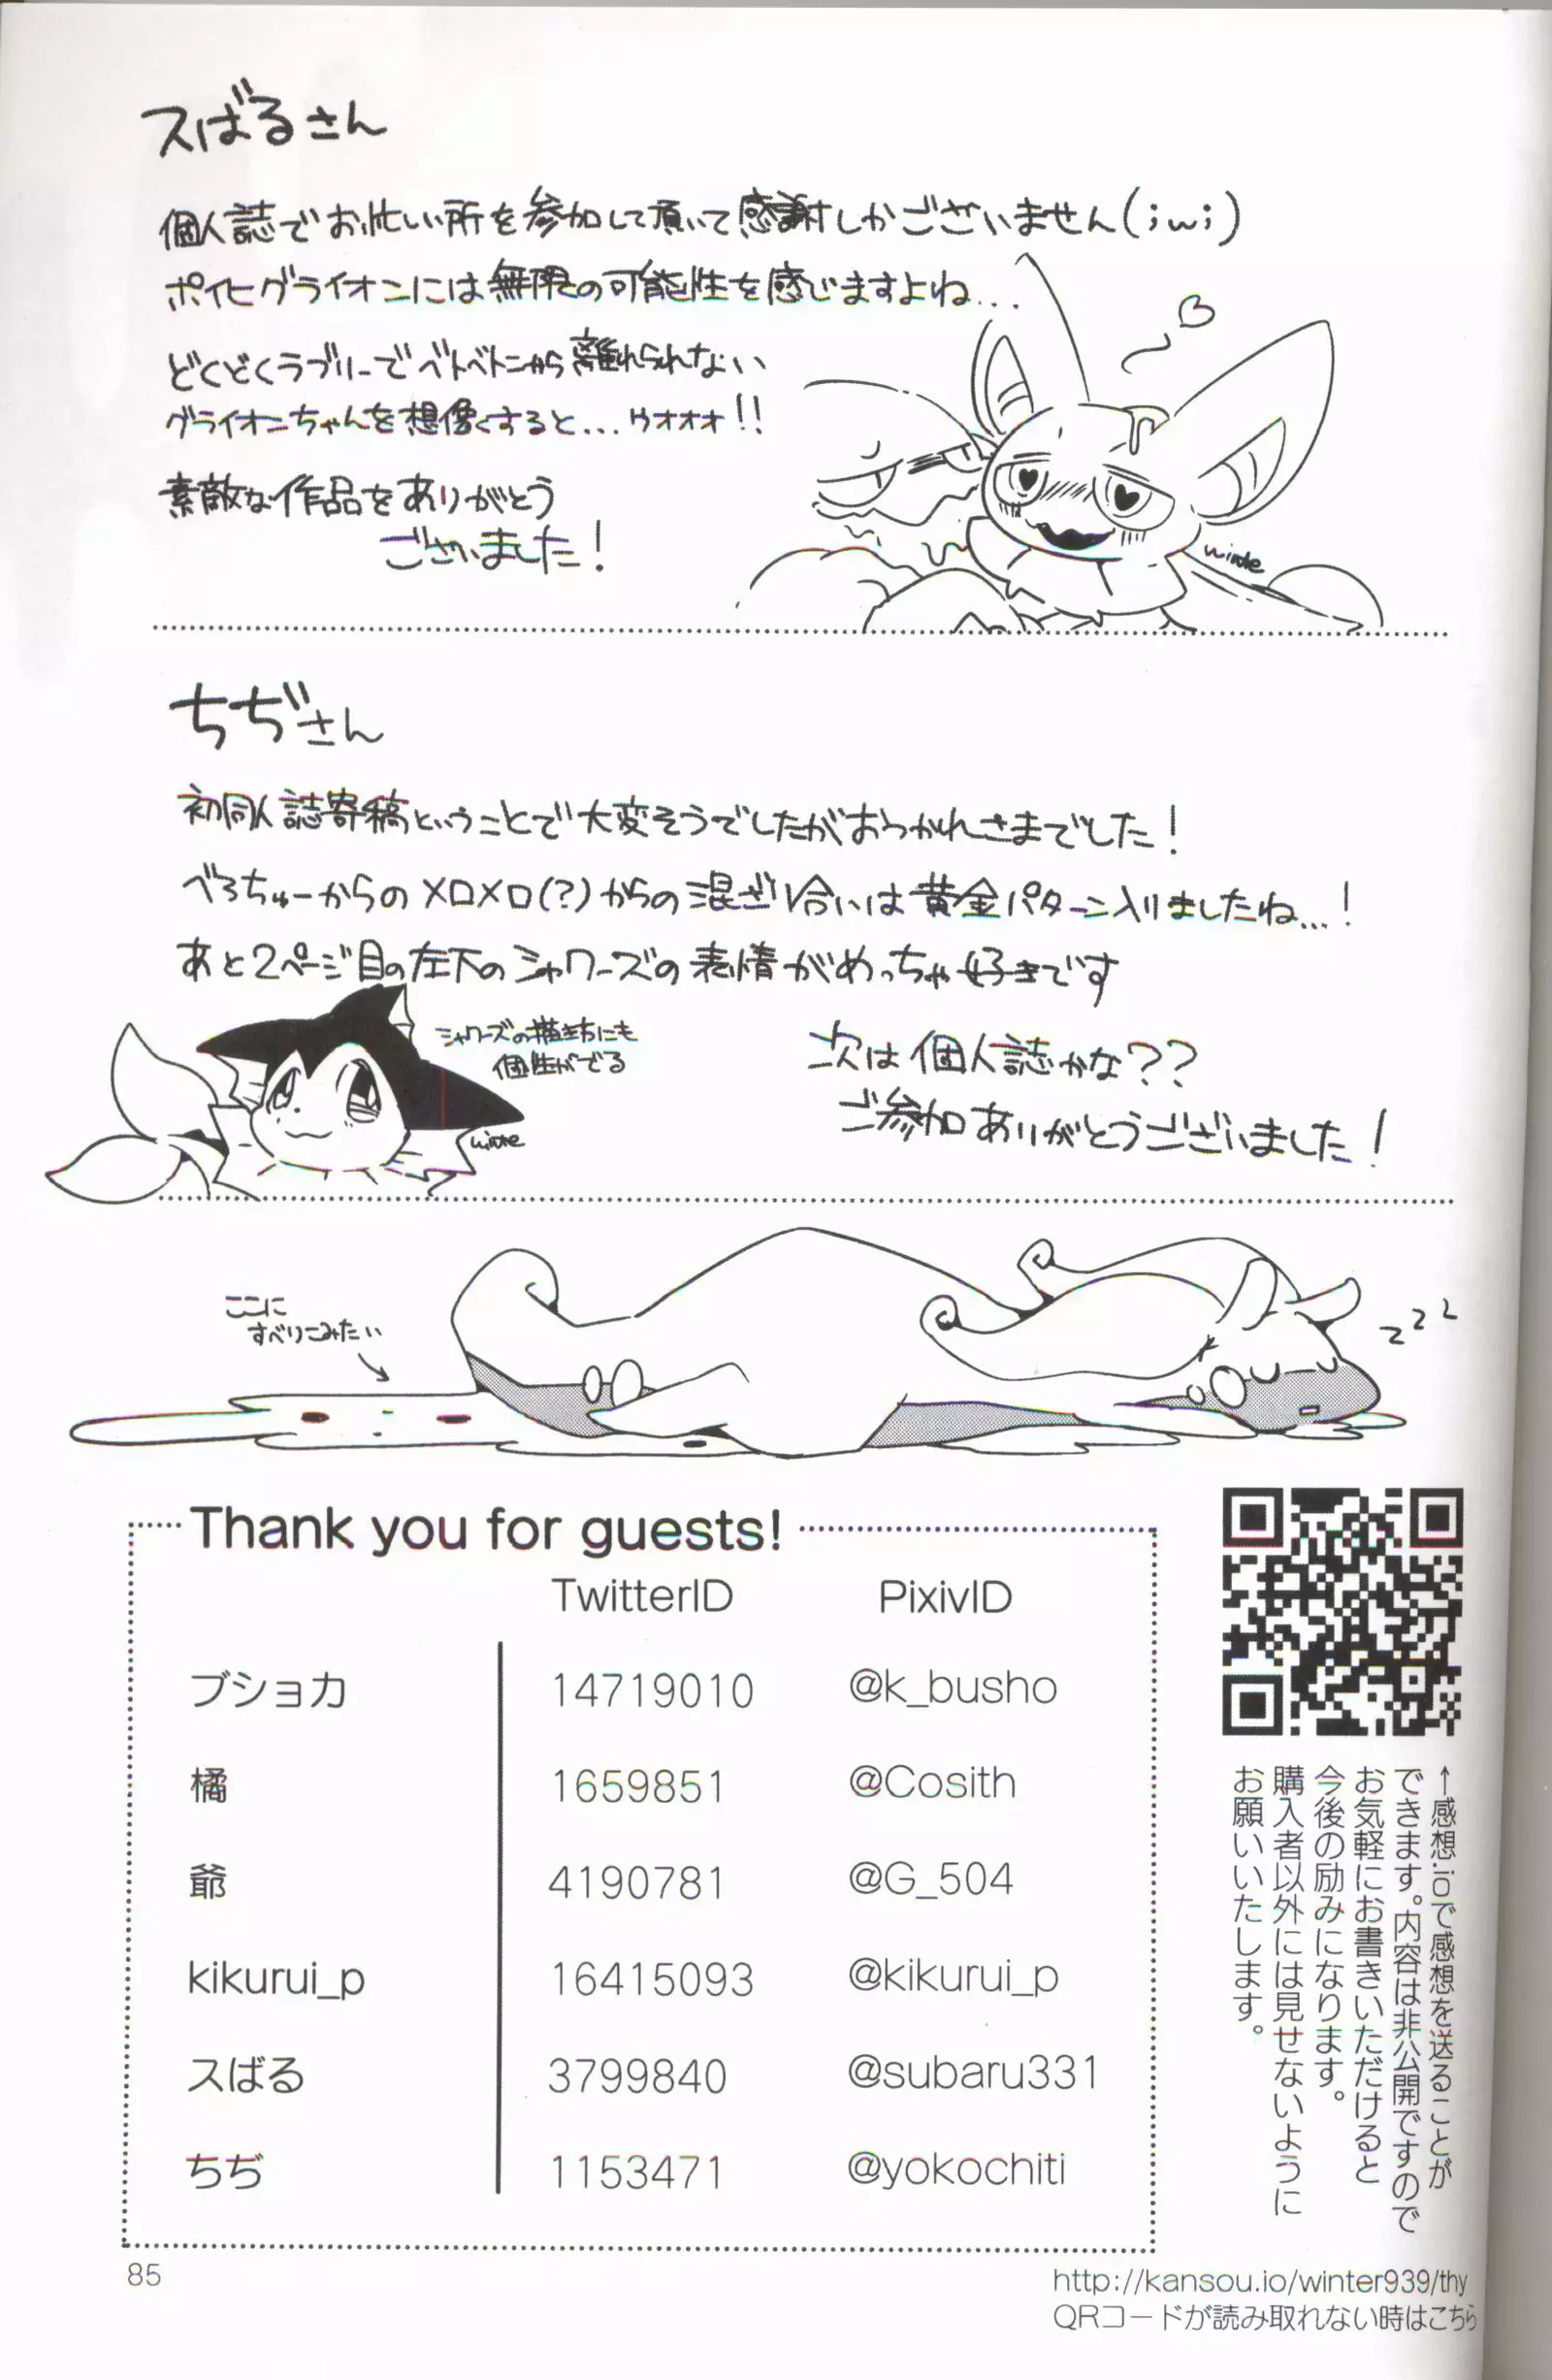 スばるさん
個人誌でお忙しい所を参加して頂いて感謝しかございません(;ω;)
ポイヒグライオンには無限の可能性を感じますよね...
どくどくラブリーでベトベトンから離れられない
グライオンちゃんを想像すると...ゥオオオ!!
素敵な作品をありがとう
ございました!
winte
ちぢさん
初同人誌寄稿ということで大変そうでしたがおつかれさまでした!
べろちゅーからのメロメロ(?)からの混ざり合いは黄金パターン入りましたね...!
あと2ページ目の左下のシャワーズの表情がめっちゃ好きです
シャワーズの描き方にも
個性がでる
次は個人誌かな??
ご参加ありがとうございました!
winte
ここに
すべりこみたい
zzz
Thank you for guests!
TwitterID PixivID
ブショカ 14719010 @k_busho
橘 1659851 @Cosith
爺 4190781 @G_504
kikurui_p 16415093 @kikurui_p
スばる 3799840 @subaru331
ちぢ 1153471 @yokochiti
←感想.ioで感想を送ることが
できます。内容は非公開ですので
お気軽にお書きいただけると
今後の励みになります。
購入者以外には見せないように
お願いいたします。
85
http://kansou.io/winter939/thy
QRコードが読み取れない時はこちら